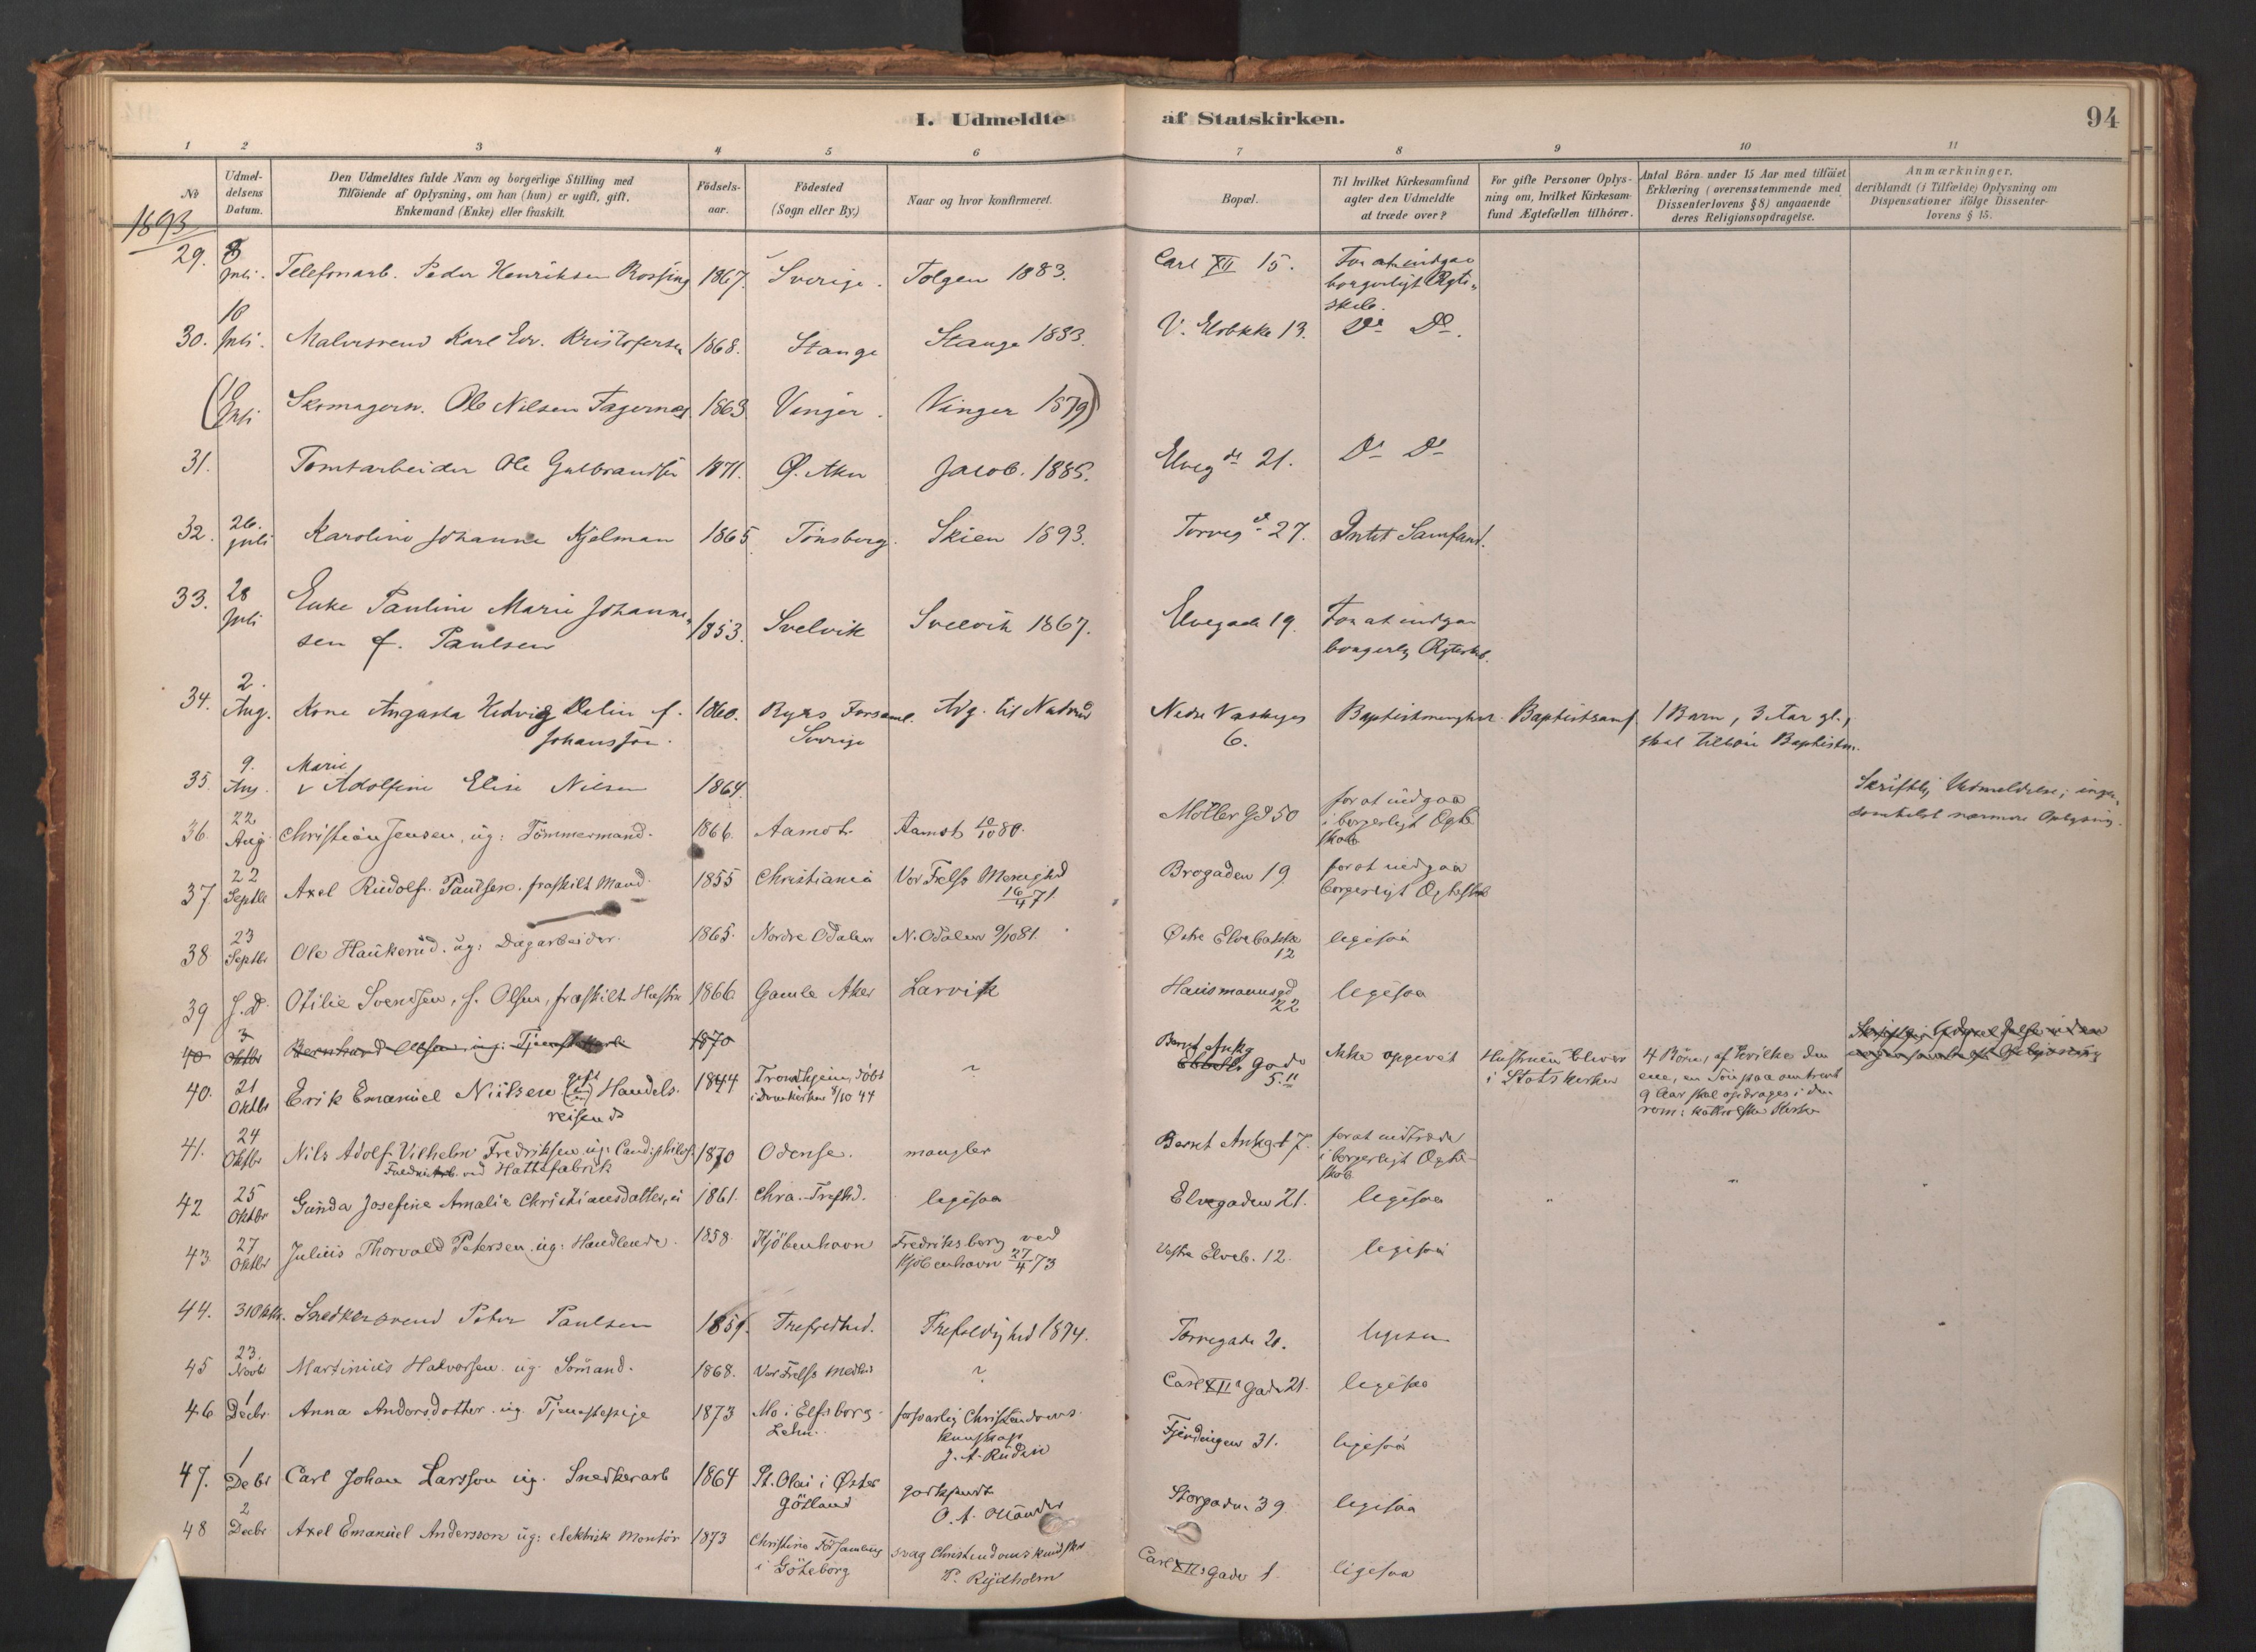 I. Udmeldte af Statskirken. 94
1 2 3 4 5 6 7 8 9 10 11
No
Udmel-
delsens
Datum.
Den Udmeldtes fulde Navn og borgerlige Stilling med
Tilföiende af Oplysning, om han (hun) er ugift, gift,
Enkemand (Enke) eller fraskilt.
Födsels-
aar.
Födested
(Sogn eller By.)
Naar og hvor konfirmeret.
Bopæl.
Til hvilket Kirkesamfund
agter den Udmeldte
at træde over?
For gifte Personer Oplys-
ning om, hvilket Kirkesam-
fund Ægtefællen tilhörer.
Antal Börn under 15 Aar med tilföiet
Erklæring (overensstemmende med
Dissenterlovens § 8) angaaende
deres Religionsopdragelse.
Anmærkninger,
deriblandt (i Tilfælde) Oplysning om
Dispensationer ifölge Dissenter-
lovens § 15.
1893
29. Juli. Telefonarb. Peder Henriksen 1867. Sverige. Tolgen 1883. Carl XII 15. For at indgaa
borgerligt Ægte-
skab.
10
30. Juli. Malersvend Karl Edv. Kristofersen 1868. Stange Stange 1883. V. Elvbakke 13. Do Do.
(10
Juli Skomagersv. Ole Nilsen Fagernæs 1863 Vinger. Vinger 1879)
31. Tomtarbeider Ole Gulbrandsen 1871. Ø. Aker Jacob. 1885. Elveg. 21. Do Do
32. 26.
juli Karoline Johanne Kjelman 1865 Tönsberg. Skien 1893. Torvg. 27. Intet Samfund.
33. 28
Juli Enke Pauline Marie Johanne-
sen f. Paulsen 1853. Svelvik Svelvik 1867. Elvegade 19. For at indgaa
borgerlig Ægteskab.
34. 2.
Aug. Kone Augusta Hedvig Dalin f.
Johansson. 1860. Ryrs Forsaml.
Sverige Adg. til Nadver Nedre Vaskegg
6. Baptistmenighed. Baptistsamf. 1 Barn, 3 Aar gl.,
skal tilhöre Baptistm.
35. 9.
Aug. Marie
v Adolfine Elise Nilsen 1864. Skriftlig Udmeldelse; ingen-
somhelst nærmere Oplysning.
36. 22
Aug. Christian Jensen, ug: Tömmermand. 1866. Aamot Aamot 10/10 80. Möller Gd 50 for at indgaa
i borgerligt Ægte
skab
37 22
Septbr Axel Rudolf Paulsen. fraskilt Mand. 1855 Christiania Vor Frelss Menighed
16/4 71. Brogaden 19. for at indgaa
borgerligt Ægteskab
38 23
Septbr Ole Haukerud. ug: Dagarbeider. 1865. Nordre Odalen N. Odalen 9/10 81. Østre Elvebakke
12 ligesaa
39 S.D. Otilie Svendsen, f. Olsen, fraskilt Hustru 1866. Gamle Aker Larvik Hausmannsgd
22 ligesaa
40 3
Oktbr Bernhard Olsen, ug: Tjenestekarl 1870 Skriftlig Udmeldelse uden
nogensomhelst Oplysning
40. 21
Oktbr Erik Emanuel Nielsen (gift) Handels.
reisende 1844 Trondhjem, döbt
i Domkirken 8/10 44 ? Bernt Ankg
Gade
5.II ikke opgivet Hustruen bliver
i Statskirken 4 Börn, af hvilke den
ene, en Sön paa omtrent
9 Aar skal opdrages i den
rom: katholske Kirke
41. 24
Oktbr Nils Adolf Vilhelm Fredriksen ug: Cand. philos.
ved Hattefabrik 1870 Odense. mangler Bernt Ankgt 7. for at indtræde
i borgerligt Ægte-
skab
42 25
Oktbr Gunda Josefine Amalie Christiansdatter, 1861. Chra. Trefhd. ligesaa Elvegaden 21. ligesaa " " "
43 27
Oktbr Julius Thorvald Petersen. ug: Handlende. 1858. Kjöbenhavn Fredriksberg ved
Kjöbenhavn 27/4 73 Vestre Elveb. 12. ligesaa
44. 31 Oktbr. Snedkersvend Peter Paulsen 1859. Trefoldhed. Trefoldighed 1874. Torvegade 20. ligesaa
45 23.
Novbr Martinius Halvorsen. ug. Sömand. 1868. Vor Frelss ? Carl XIIs Gade 21. ligesaa
46 1
Decbr. Anna Andersdotter. ug. Tjenestepige 1873 Mo i Elfsborg
Lehn. forsvarlig Christendoms
kunskap
J. A. Rudin Fjerdingen 31. ligesaa
47. 1
Decbr Carl Johan Larsson ug. Snedkerarb 1864 St. Olai i Øster
Götland godkjendt
O. A. Storgaden 39. ligesaa
48 2
Decbr Axel Emanuel Andersson ug: elektrisk Montör 1873 Christine Församling
i Göteborg svag Christendomskundskab
P. Rydholm Carl XIIs Gade 1. ligesaa